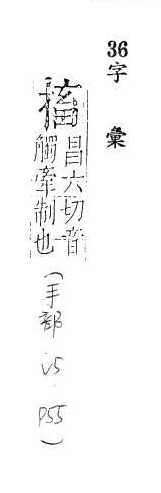 36字彙
搐
昌六切音
觸牽制也
(手部 V5 P55)